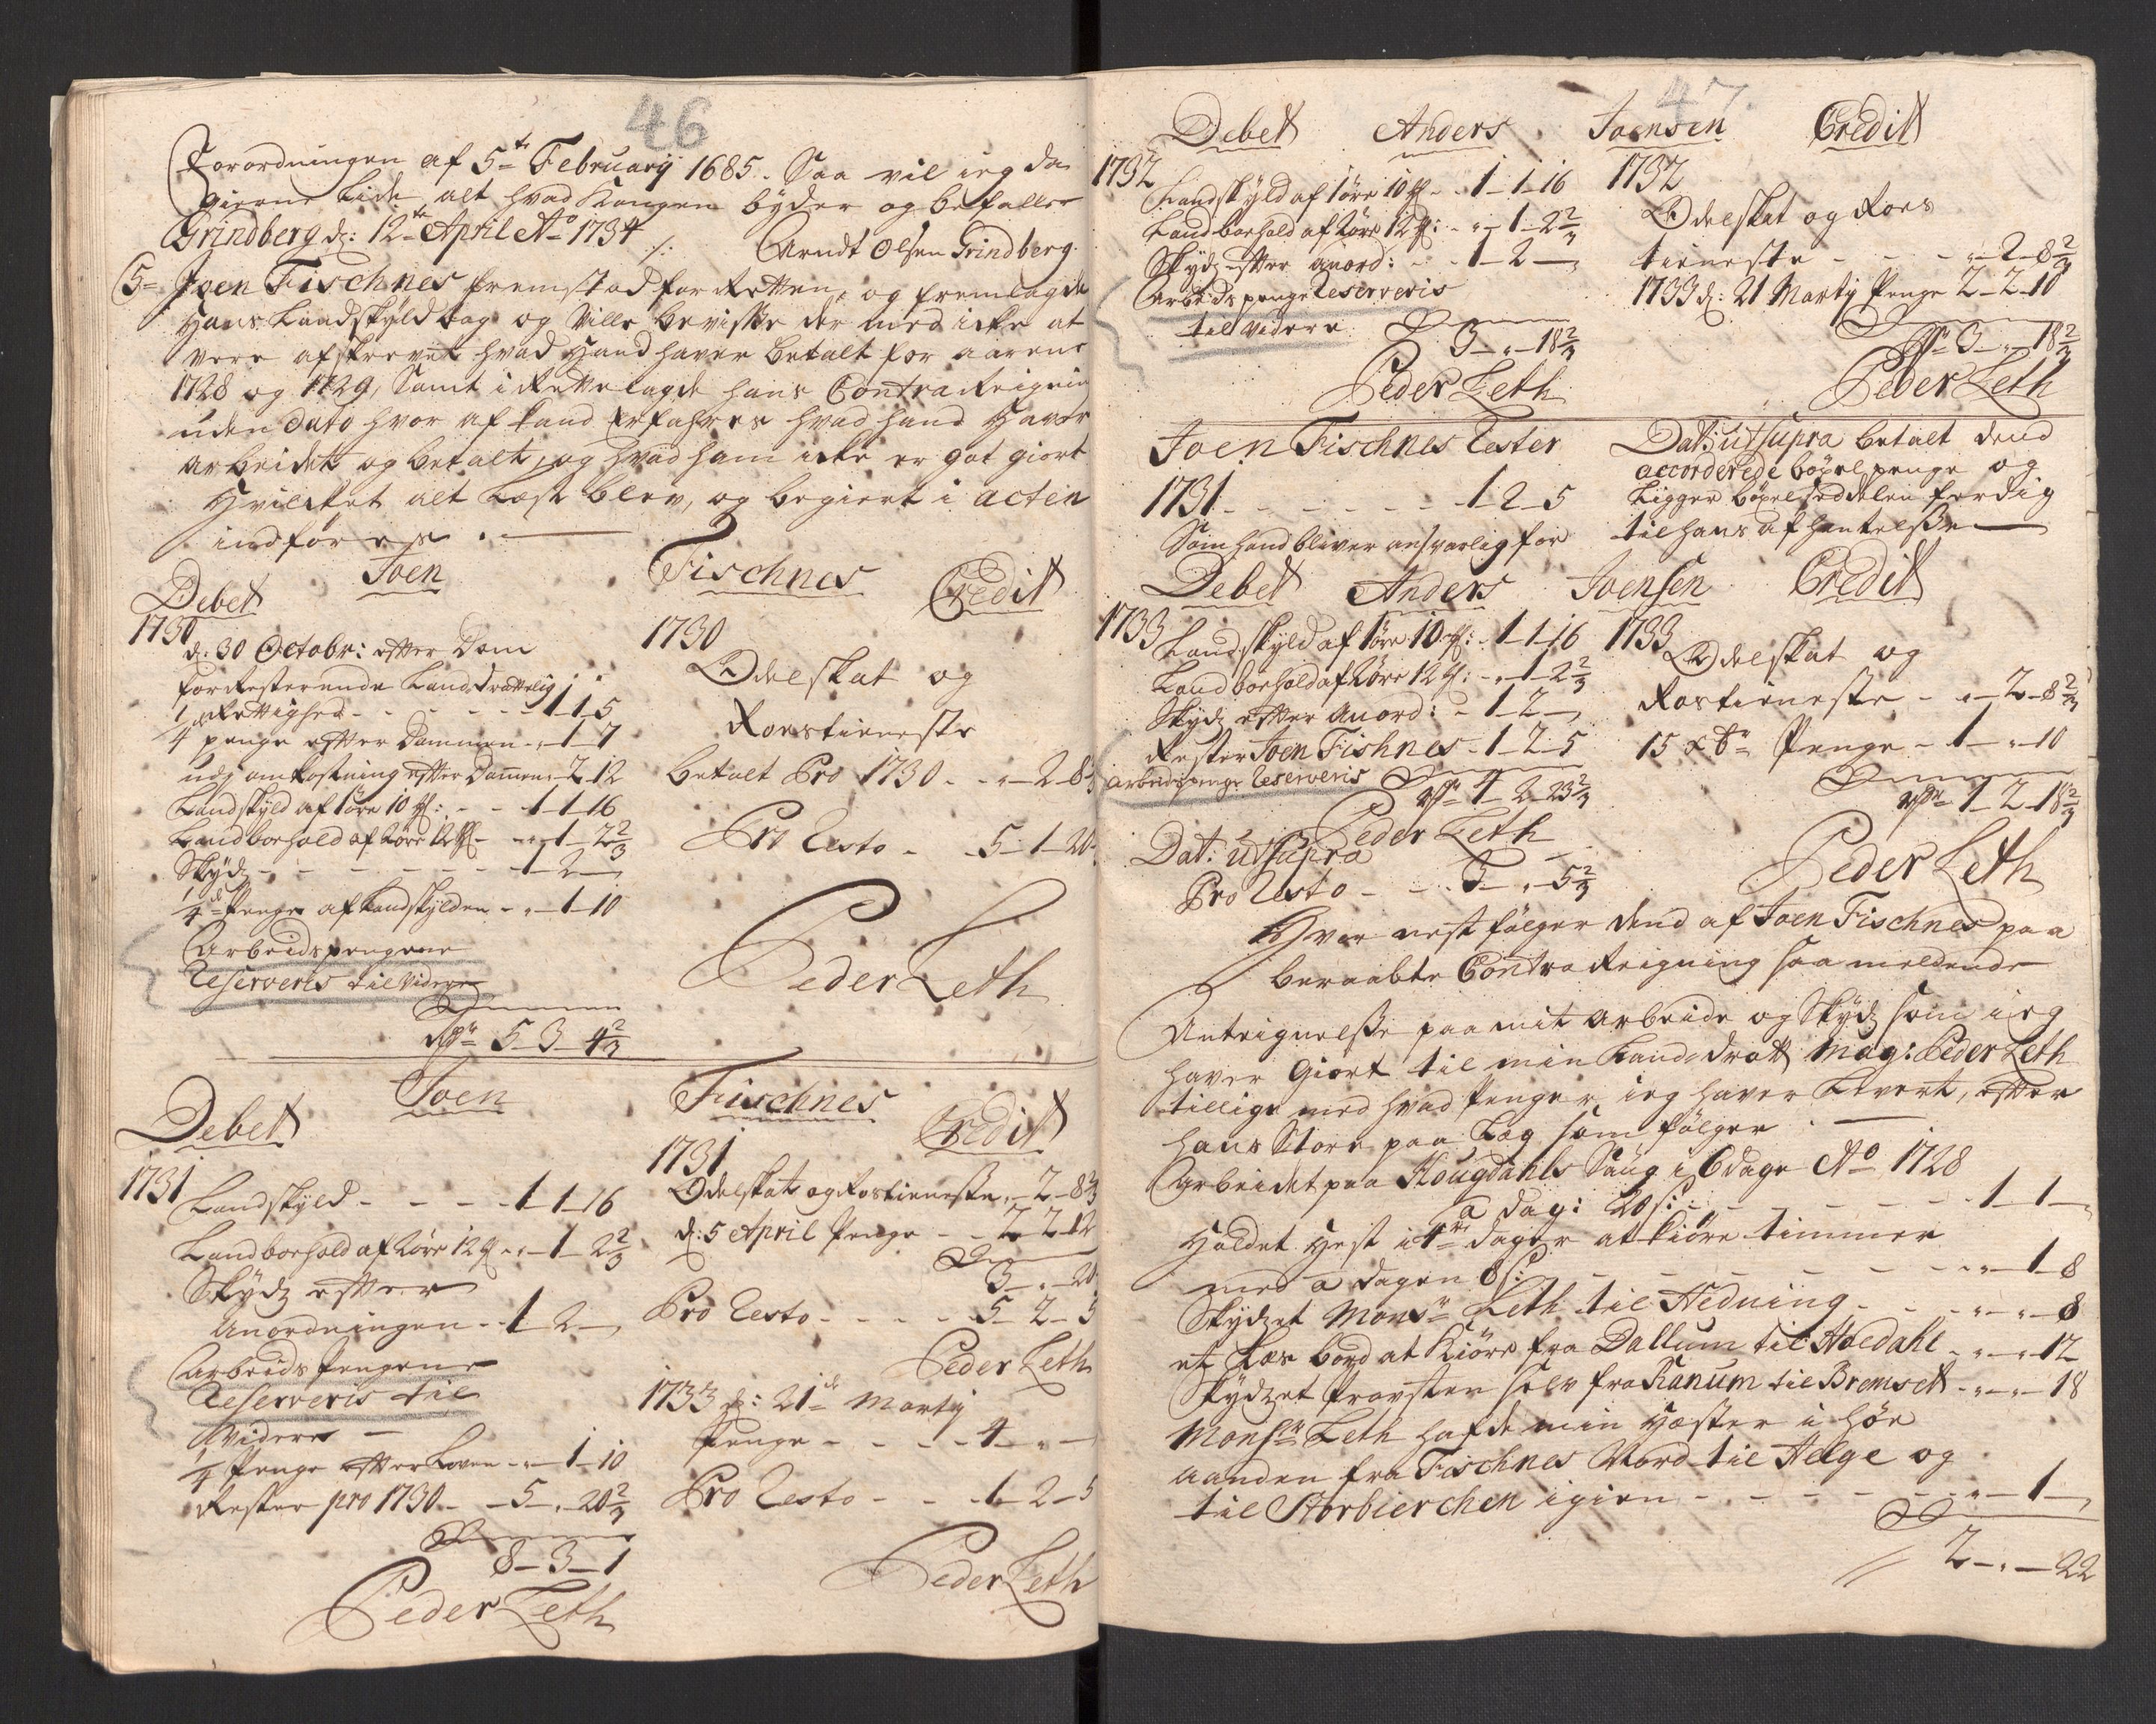 46
Forordningen af 5te February 1685. Saa vil ieg da
gierne lide, alt hvad Kongen byder og befaller
Grindberg d: 12te April Ao 1734 ./. Arndt Olsen Grindberg.
5= Joen Fischnes fremstod for Retten, og fremlagde
Hans Landskyld bog og Ville beviste der med icke at
vere afskrevet hvad Hand haver betalt for aarene
1728 og 1729, Samt i Rette lagde hans Contra Reigning
uden Dato hvor af kand Erfahres hvad hand Haver
arbeidet og betalt, og hvad ham icke er got giort
Hvilcket alt Læst blev, og begiert i acten
indføres.
Debet Joen Fischnes Credit
1730
d. 30 Octobr: efter Dom
for Resterende Landdrottelig
Rettighed - - - 1-1-5
1/4 penge efter Dommen - „-1-7
udj omkostning efter Dommen - 2-12
Landskyld af 1 øre 10 - - 1-1-16
Landboehold af 2 øre 12 - „-1-2 2/3
Skydz - - - 1-2-„
1/4 de Penge af Landskylden - „-1-10
Arbeidspengene
Reserveris til Videre
Summa
Rdr 5-3-4 2/3
1730
Odelskat og
Rostieneste
betalt Pro 1730 - - „-2-8 2/3
Pro Resto - - 5-1-20
Peder Leth
Debet Joen Fischnes Credit
1731
Landskyld - - - 1-1-16
Landboehold af 2 øre 12 - „-1-2 2/3
Skydz efter
Anordningen - - 1-2-„
Arbeids Pengene
Reserveris til
Videre -
1/4 Penge efter Loven - „-1-10
Rester pro 1730 - - 5-„-20 2/3
Summa
8-3-1
Peder Leth
1731
Odelskat og Rostieneste „-2-8 2/3
d: 5 April Penge - - 2-2-12
Summa
3-„-20
Pro Resto - - - 5-2-5
Peder Leth
1733 d: 21de Martij
Penge - - - 4-„-
Pro Resto - - 1-2-5
Peder Leth
47
Debet Anders Joensen Credit
1732
Landskyld af 1 øre 10 - - 1-1-16
Landboehold af 2 øre 12: - „-1-2 2/3
Skydz efter anord: - - 1-2-„
Arbeids penge Reserveris
til videre
3-„-18 2/3
Peder Leth
1732
Odelskat og Ros
tieneste - - - „-2-8 2/3
1733 d: 21 Martij Penge 2-2-10
Rdr 3-„-18 2/3
Peder Leth
Joen Fischnes Rester
1731 - - - - 1-2-5
Som hand bliver ansvarlig for
Dat: ut supra betalt dend
accorderede bøxel penge og
Ligger bøxelseddelen ferdig
til hans afhentelsse
Debet Anders Joensen Credit
1733
Landskyld af 1 øre 10: - 1-1-16
Landboehold af 2 øre 12: - „-1-2 2/3
Skydz efter Anord: - 1-2-„
Rester Joen Fishnes - 1-2-5
Arbeidspenge Reserveris
Summa
Rdr 4-2-23 2/3
Peder Leth
Dat: ut supra
Pro Resto - - 3-„-5 2/3
1733
Odelskat og
Rostieneste - „-2-8 2/3
15 Xbr Penge - 1-„-10
Summa
Rdr 1-2-18 2/3
Peder Leth
Hver nest følger dend af Joen Fischnes paa
beraabte Contra Reigning saa meldende
Antegnelsse paa mit Arbeide og Skydz som ieg
haver Giort til min Landdrott Mag: Peder Leth
tillige med hvad Penger ieg haver Levert, efter
hans Store paa Læg som følger
Arbeidet paa Hougdahls Saug i 6 dage Ao 1728
a dag: 20 s: - - - - 1-1-„
Holdet Hest i 4re dager at kiøre timmer
med a dagen 8 s: - - - - „-1-8
Skydzet Monsr Leth til Hedning - - - „-„-8
et Læs bord at kiøre fra Dallum til Høedahl - „-„-12
Skydzet Provsten selv fra Ranum til Bremset - „-„-18
Monsr Leth hafde min Hæster i høe
aanden fra Fischnes Nord til Helge og
til Storbierchen igien - - - - „-1-„
Summa
2-„-22